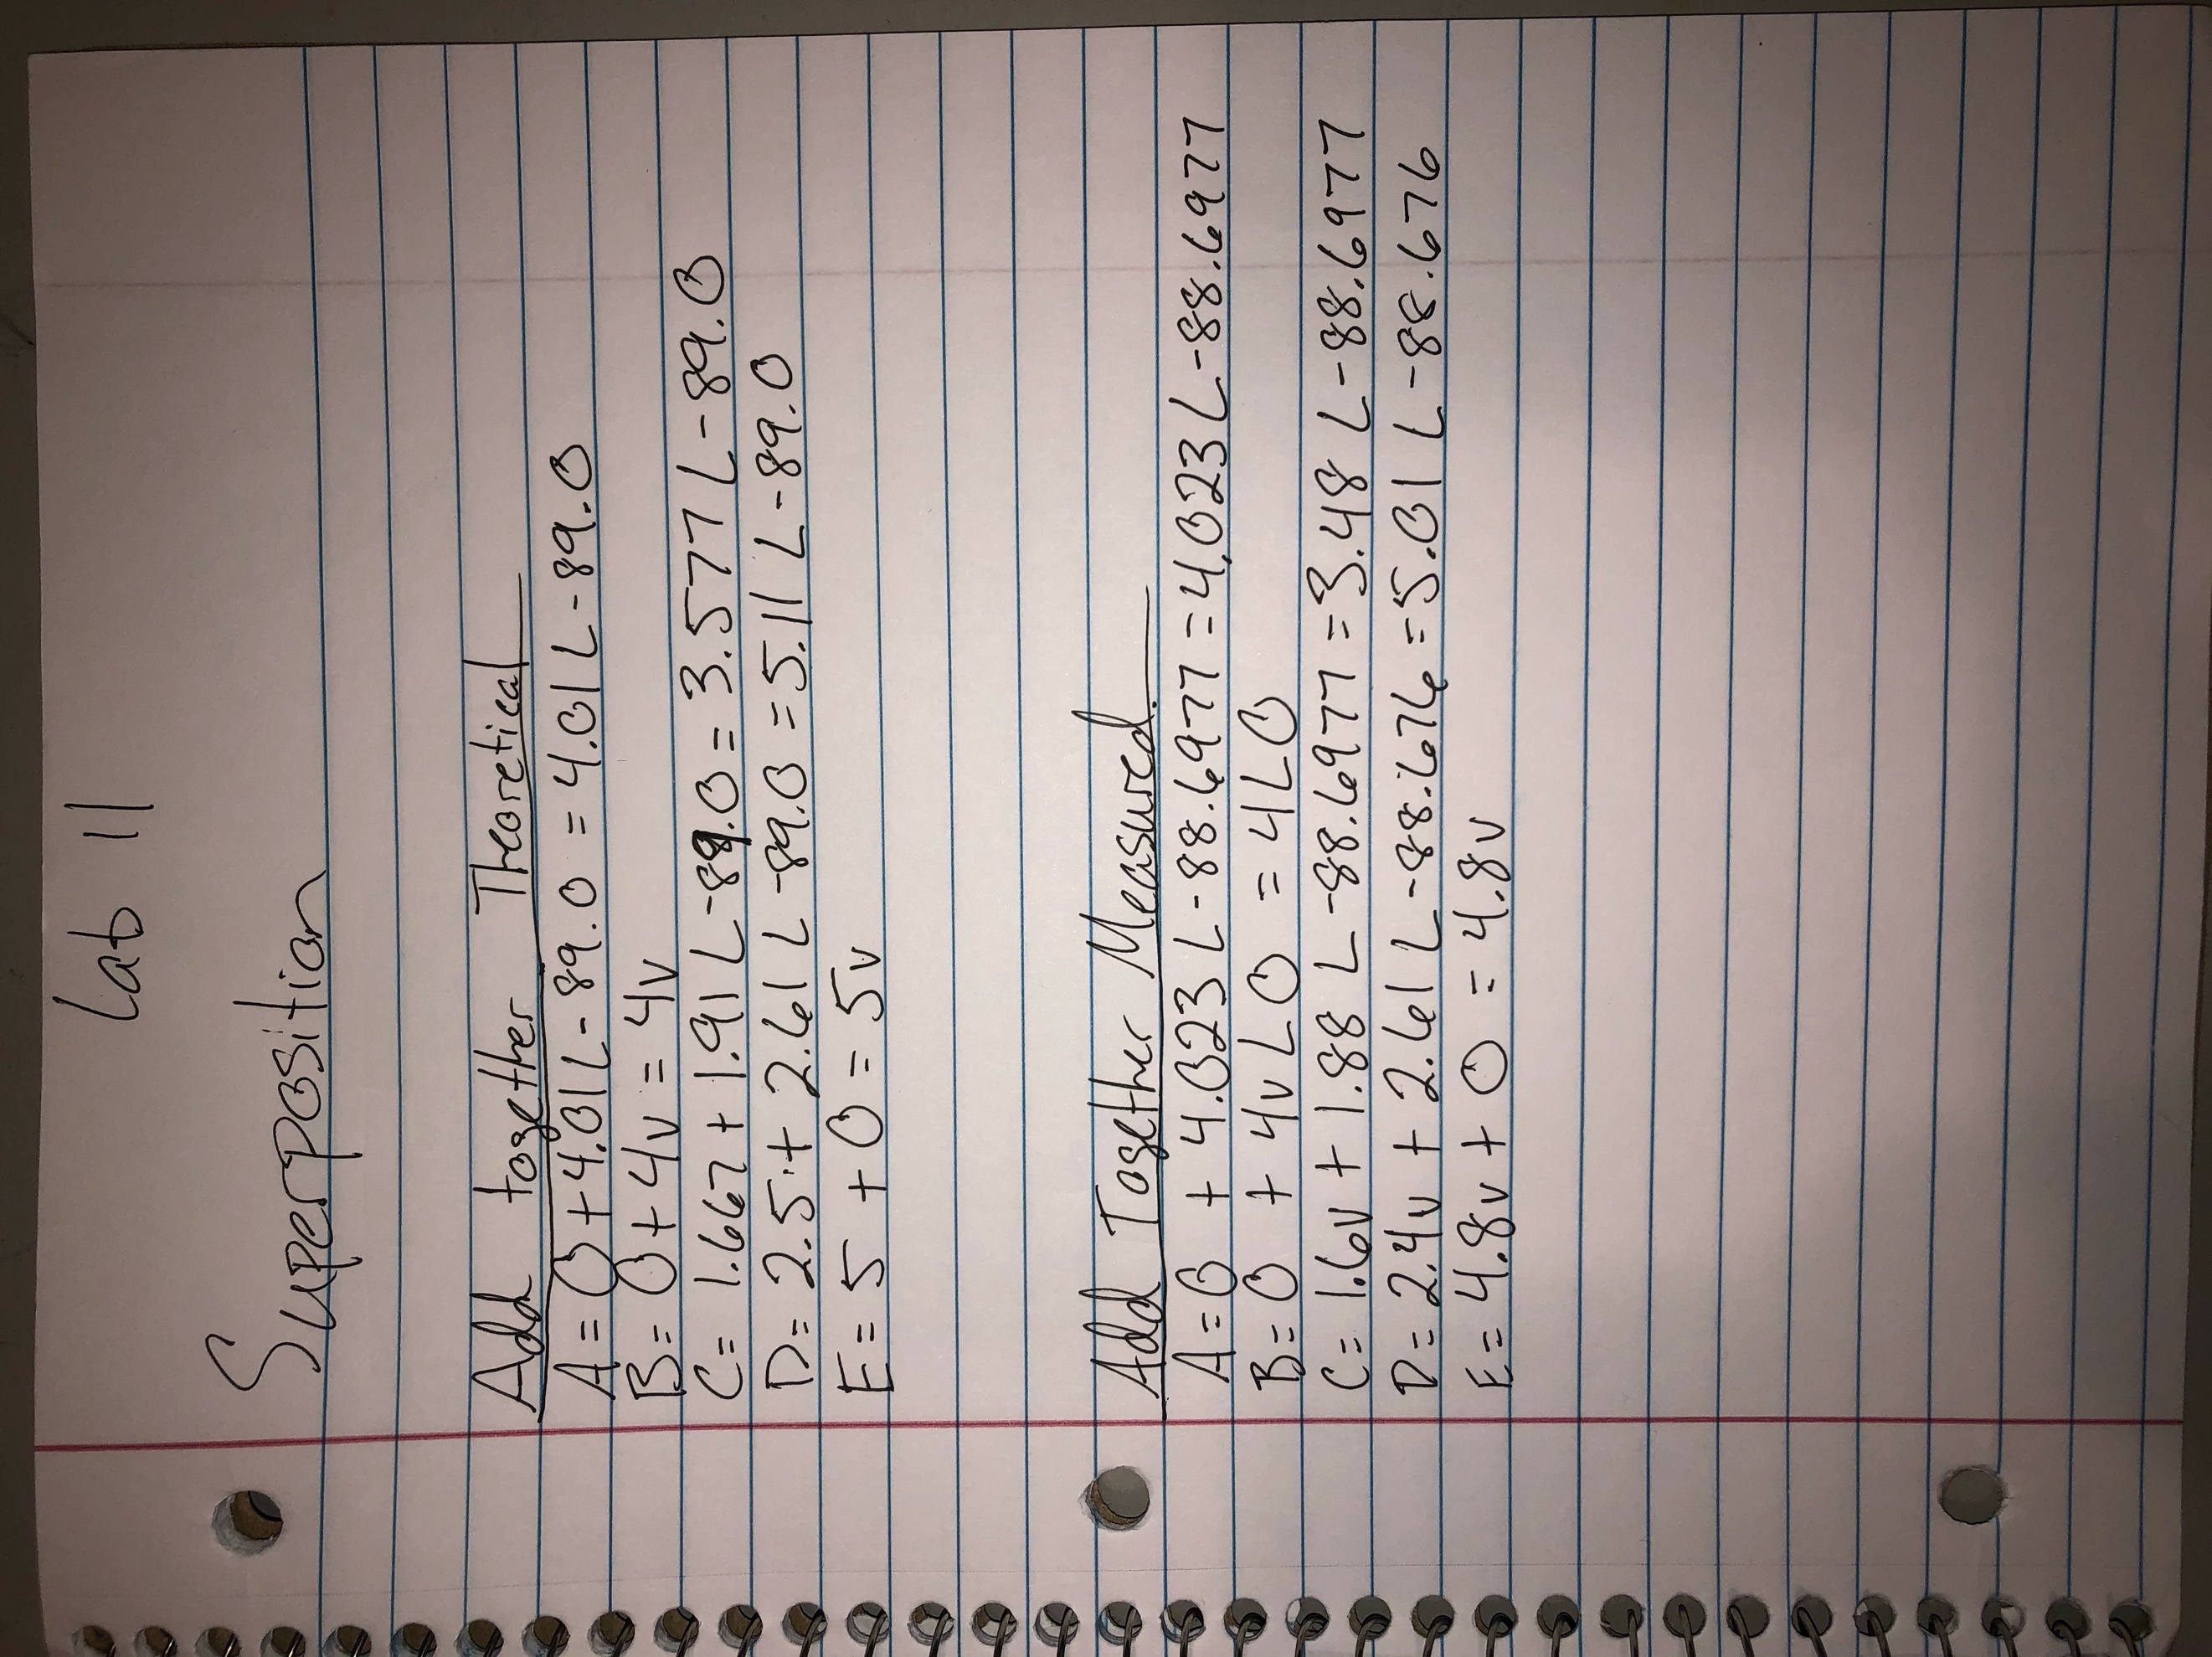 Lab 11
Superposition
Add together Theoretical
A = 0 + 4.01 L - 89.0 = 4.01 L - 89.0
B = 0 + 4v = 4v
C = 1.667 + 1.91 L - 89.0 = 3.577 L - 89.0
D = 2.5 + 2.61 L - 89.0 = 5.11 L - 89.0
E = 5 + 0 = 5v
Add Together Measured
A = 0 + 4.023 L - 88.6977 = 4.023 L - 88.6977
B = 0 + 4v L 0 = 4 L 0
C = 1.6v + 1.88 L - 88.6977 = 3.48 L - 88.6977
D = 2.4v + 2.61 L - 88.676 = 5.01 L - 88.676
E = 4.8v + 0 = 4.8v